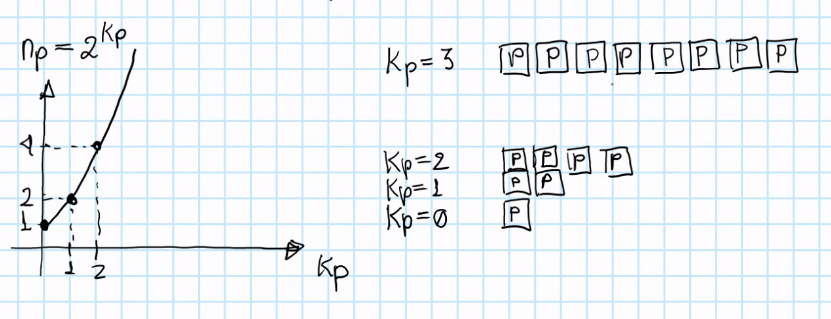 np = 2^Kp
4
2
1
1 2
Kp
Kp = 3 P P P P P P P P
Kp = 2 P P P P
Kp = 1 P P
Kp = 0 P